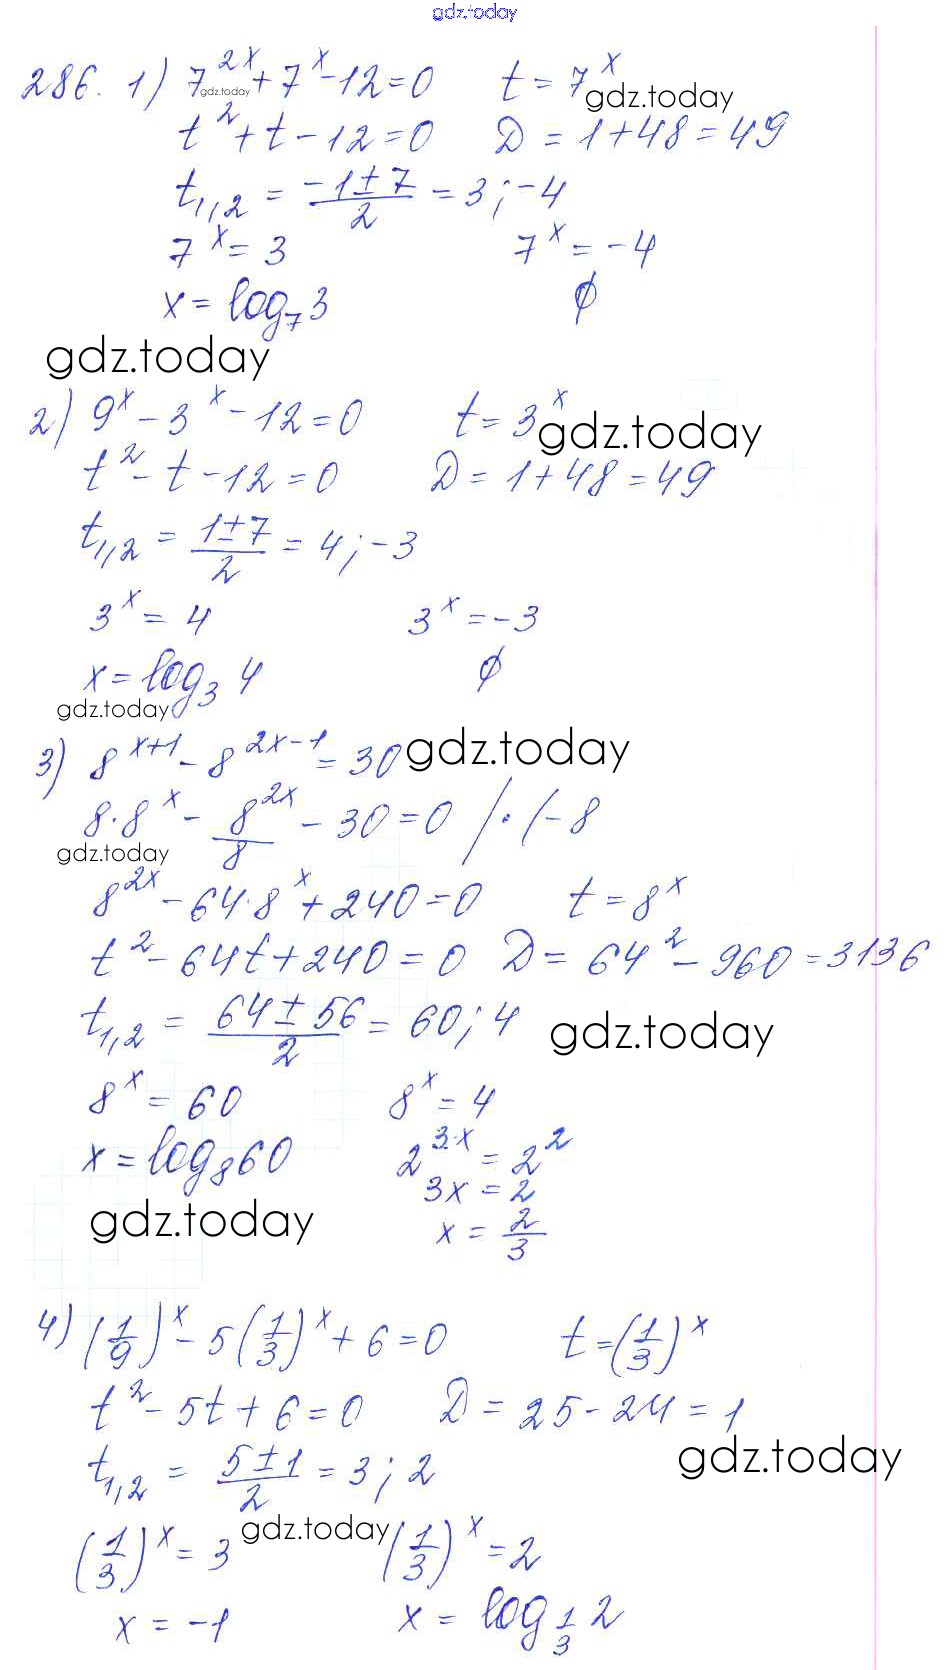 gdz.today
286. 1) 7^{2x} + 7^x - 12 = 0 t = 7^x
gdz.today gdz.today
t^2 + t - 12 = 0 D = 1 + 48 = 49
t_{1,2} = \frac{-1 ± 7}{2} = 3; -4
7^x = 3 7^x = -4
x = log_7 3 ∅
gdz.today
2) 9^x - 3^x - 12 = 0 t = 3^x
gdz.today
t^2 - t - 12 = 0 D = 1 + 48 = 49
t_{1,2} = \frac{1 ± 7}{2} = 4; -3
3^x = 4 3^x = -3
x = log_3 4 ∅
gdz.today
3) 8^{x+1} - 8^{2x-1} = 30
gdz.today
8 · 8^x - \frac{8^{2x}}{8} - 30 = 0 /· (-8
gdz.today
8^{2x} - 64 · 8^x + 240 = 0 t = 8^x
t^2 - 64t + 240 = 0 D = 64^2 - 960 = 3136
t_{1,2} = \frac{64 ± 56}{2} = 60; 4
gdz.today
8^x = 60 8^x = 4
x = log_8 60 2^{3·x} = 2^2
3x = 2
gdz.today
x = \frac{2}{3}
4) (\frac{1}{9})^x - 5(\frac{1}{3})^x + 6 = 0 t = (\frac{1}{3})^x
t^2 - 5t + 6 = 0 D = 25 - 24 = 1
gdz.today
t_{1,2} = \frac{5 ± 1}{2} = 3; 2
gdz.today
(\frac{1}{3})^x = 3 (\frac{1}{3})^x = 2
x = -1 x = log_{\frac{1}{3}} 2